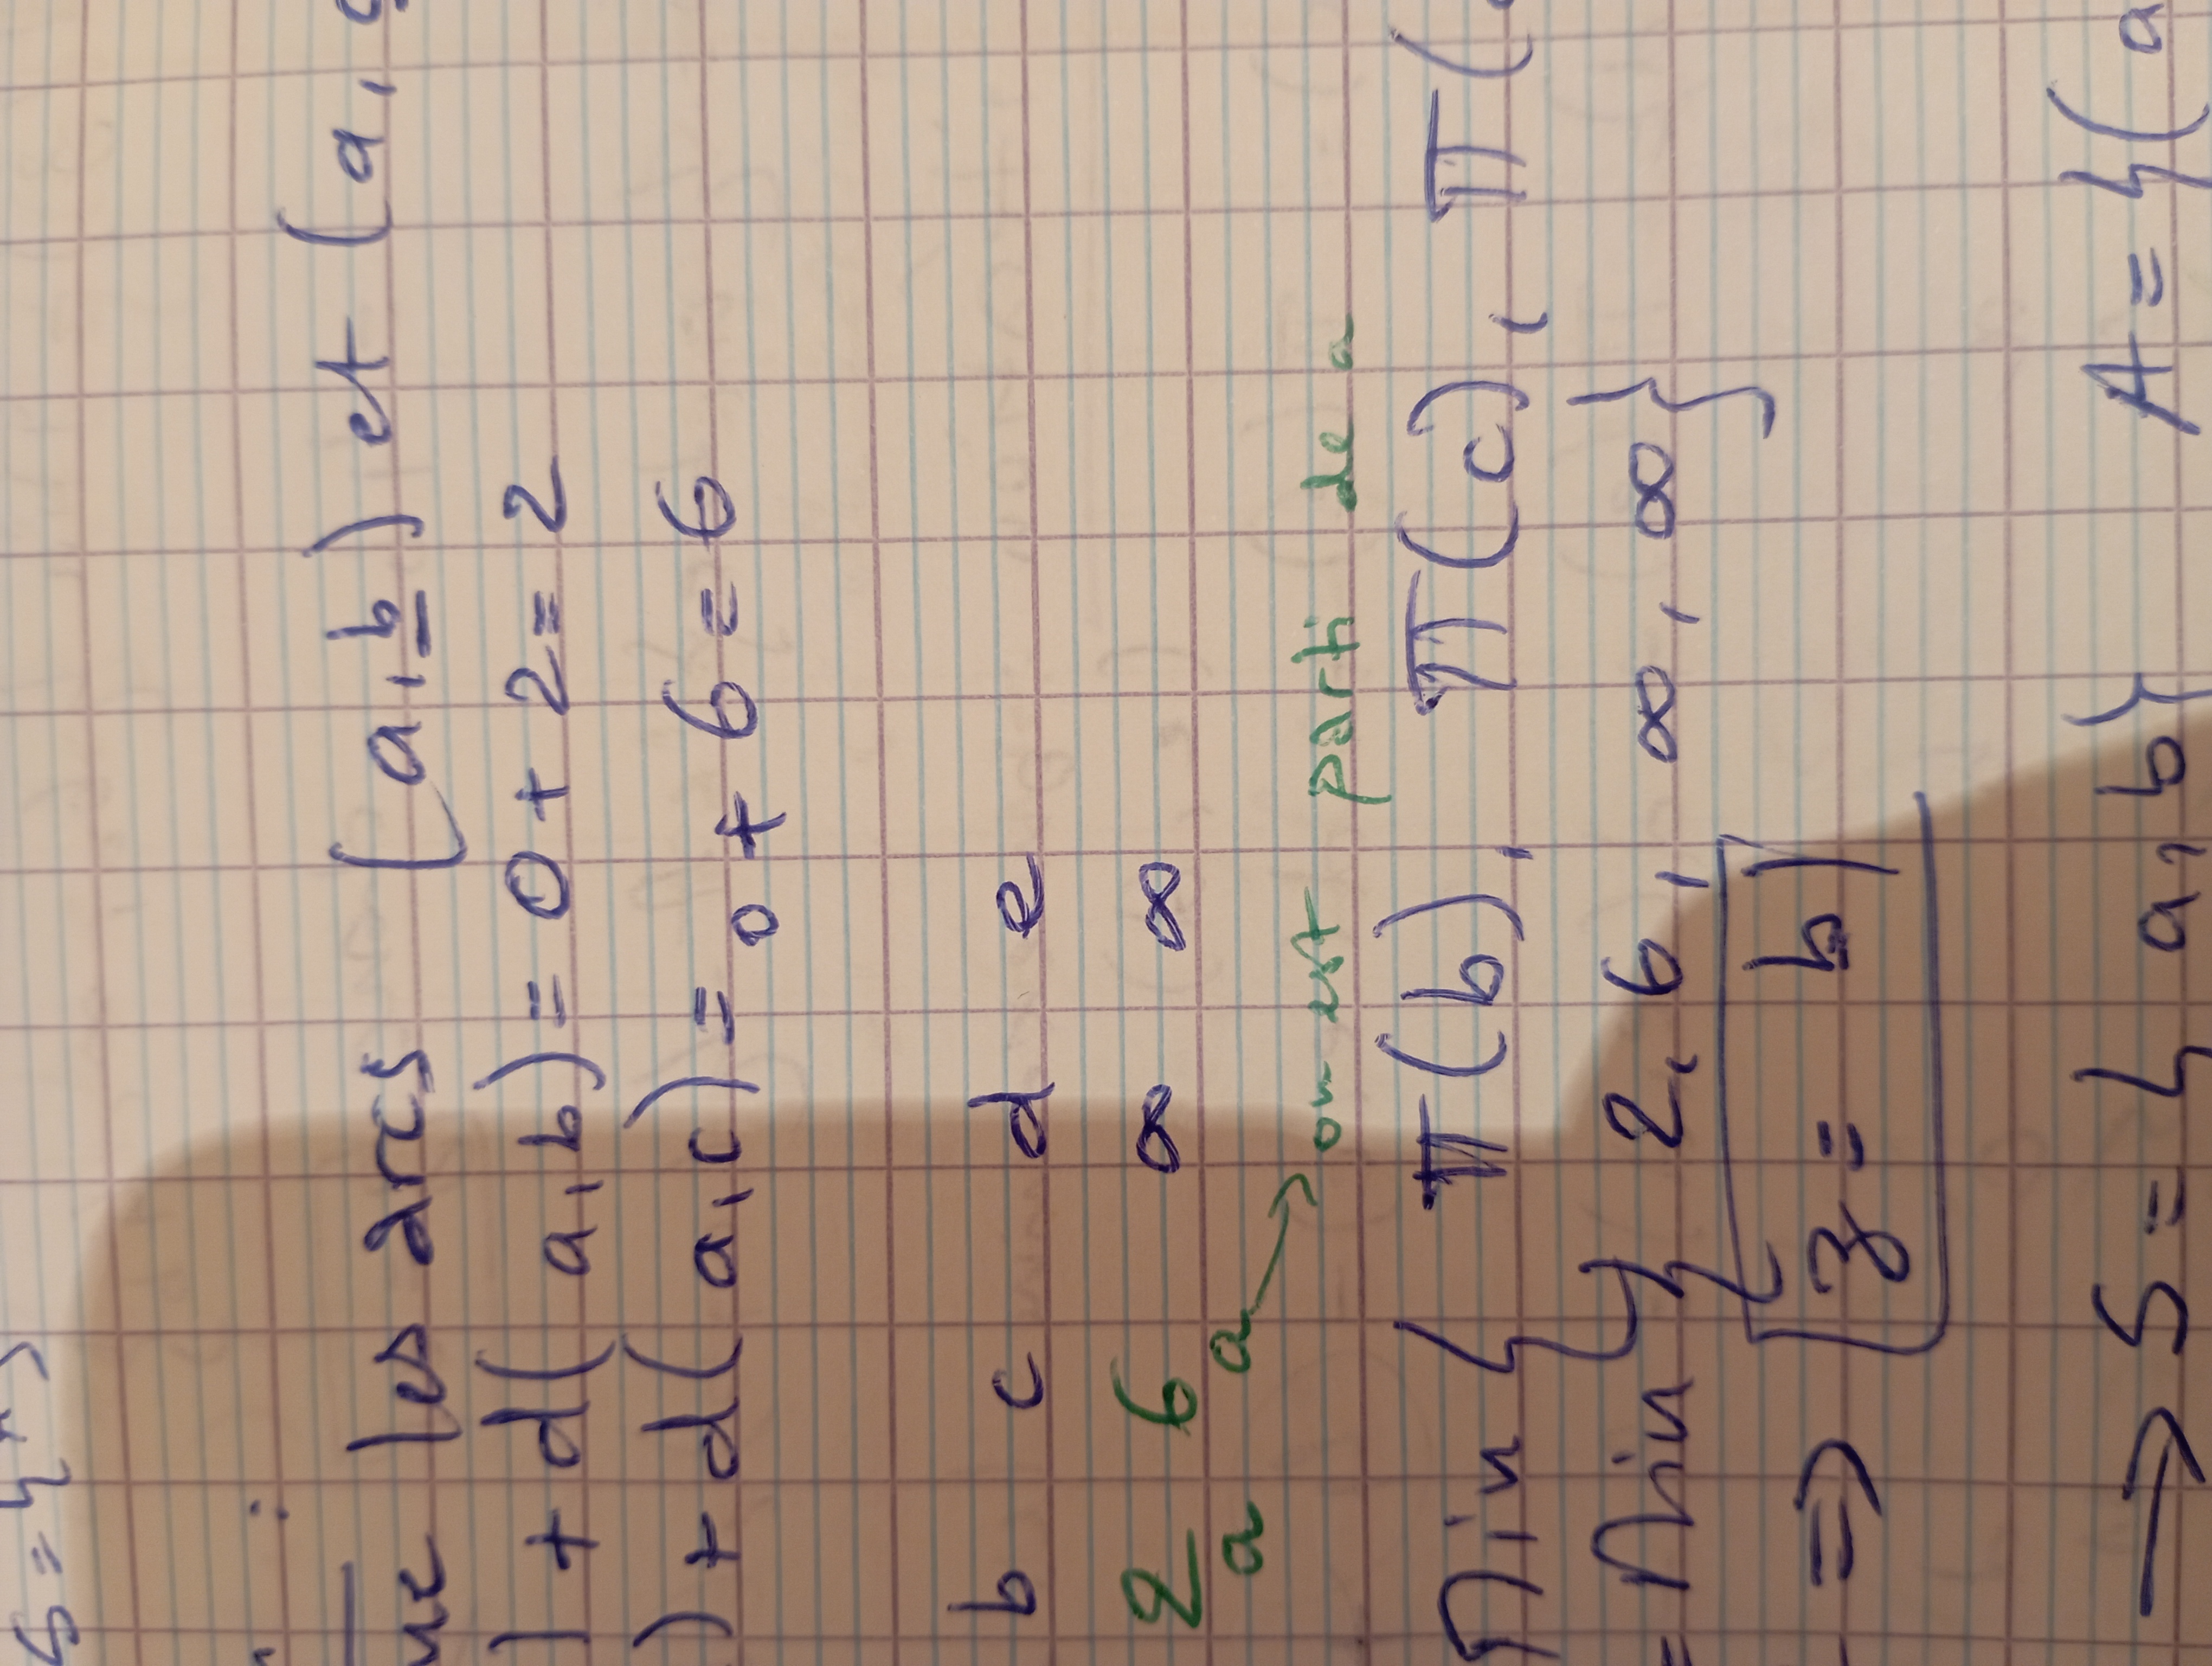 S = {
les arcs (a, b) et (a,
) + d( a, b) = 0 + 2 = 2
) + d( a, c) = 0 + 6 = 6
b c d e
2 6 ∞ ∞
a a → on est parti de a
Min { π(b), π(c), π(
= Min { 2, 6, ∞, ∞ }
=> { z = b }
→ S = { a, b } A = { ( a